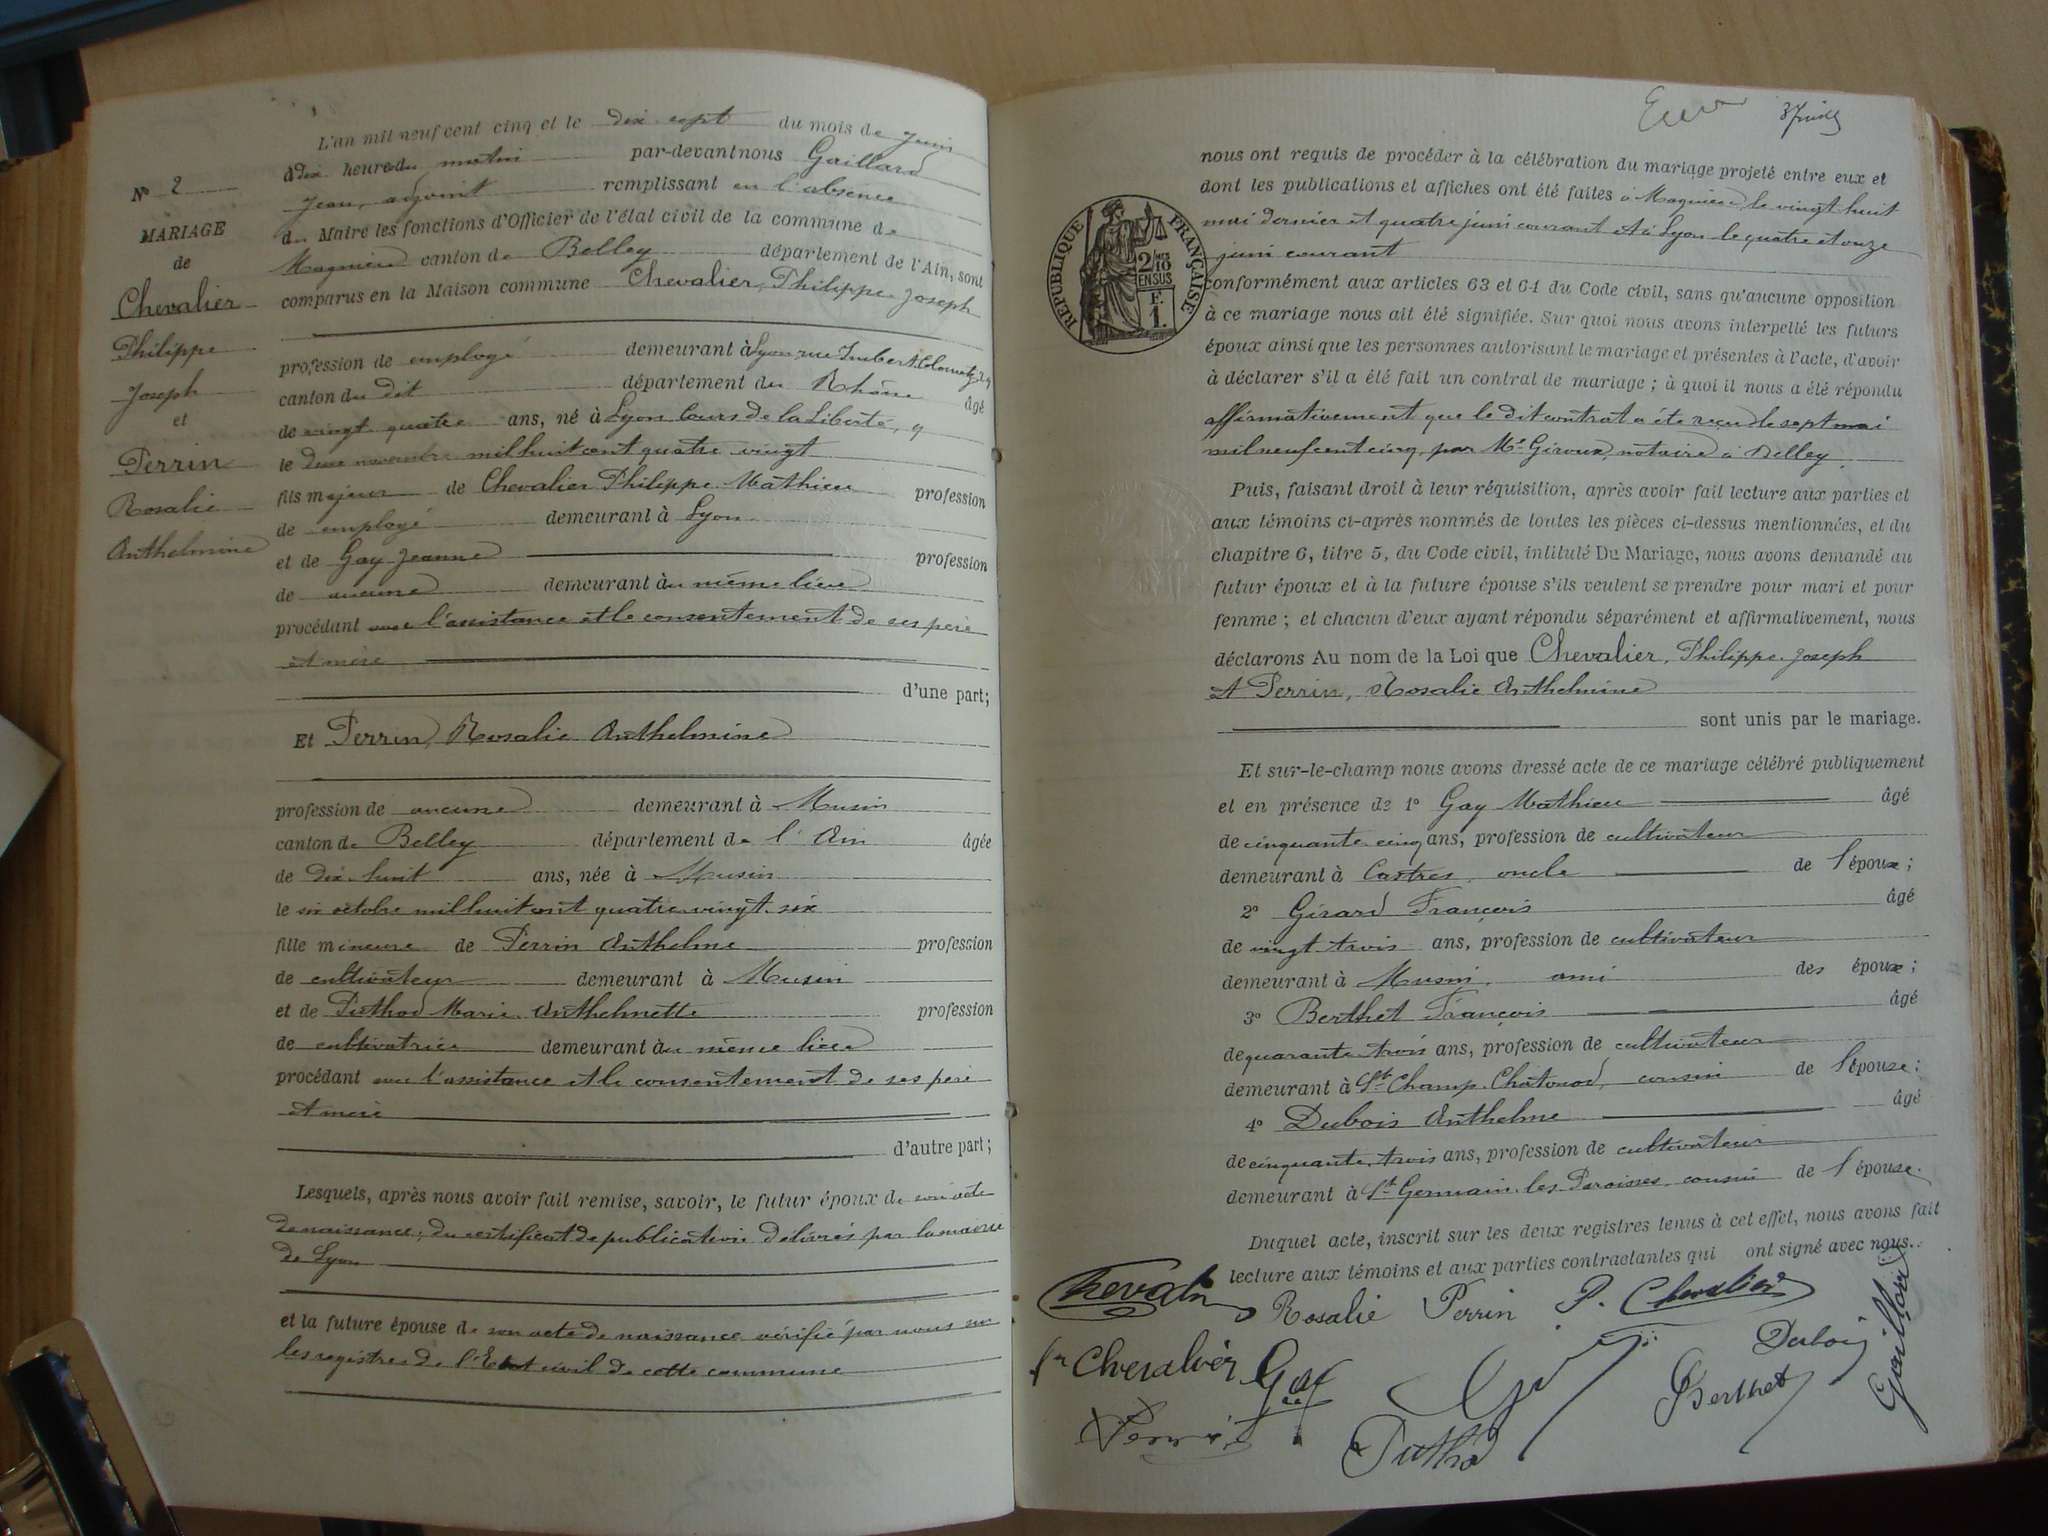 N° 2
MARIAGE
de
Chevalier
Philippe
Joseph
et
Perrin
Rosalie
Anthelmine
L'an mil neuf cent cinq et le dix sept du mois de juin
à dix heure du matin par-devant nous Gaillard
Jean, adjoint remplissant en l'absence
du Maire les fonctions d'Officier de l'état civil de la commune de
Magnieu canton de Belley département de l'Ain, sont
comparus en la Maison commune Chevalier, Philippe Joseph
profession de employé demeurant à Lyon rue Imbert Colomès, 29
canton du dit département du Rhône âgé
de vingt quatre ans, né à Lyon Cours de la Liberté, 9
le novembre mil huit cent quatre vingt
fils majeur de Chevalier Philippe Mathieu profession
de employé demeurant à Lyon
et de Gay Jeanne profession
de aucune demeurant au même lieu
procédant avec l'assistance et le consentement de ses père
et mère
d'une part;
Et Perrin, Rosalie Anthelmine
profession de aucune demeurant à Musin
canton de Belley département de l'Ain âgée
de dix-huit ans, née à Musin
le six octobre mil huit cent quatre-vingt-six
fille mineure de Perrin Anthelme profession
de cultivateur demeurant à Musin
et de Puthod Marie Anthelmette profession
de cultivatrice demeurant au même lieu
procédant avec l'assistance et le consentement de ses père
et mère
d'autre part;
Lesquels, après nous avoir fait remise, savoir, le futur époux de son acte
de naissance; du certificat de publication délivrés par la mairie
de Lyon
et la future épouse de son acte de naissance vérifié par nous sur
les registres de l'Etat civil de cette commune
nous ont requis de procéder à la célébration du mariage projeté entre eux et
dont les publications et affiches ont été faites à Magnieu le vingt huit
mai dernier et quatre juin courant et à Lyon le quatre et onze
juin courant
RÉPUBLIQUE FRANÇAISE
2/10 EN SUS
F.
1.
conformément aux articles 63 et 64 du Code civil, sans qu'aucune opposition
à ce mariage nous ait été signifiée. Sur quoi nous avons interpellé les futurs
époux ainsi que les personnes autorisant le mariage et présentes à l'acte, d'avoir
à déclarer s'il a été fait un contrat de mariage; à quoi il nous a été répondu
affirmativement que le dit contrat a été reçu le sept mai
mil neuf cent cinq, par Me Giroux, notaire à Belley.
Puis, faisant droit à leur réquisition, après avoir fait lecture aux parties et
aux témoins ci-après nommés de toutes les pièces ci-dessus mentionnées, et du
chapitre 6, titre 5, du Code civil, intitulé Du Mariage, nous avons demandé au
futur époux et à la future épouse s'ils veulent se prendre pour mari et pour
femme; et chacun d'eux ayant répondu séparément et affirmativement, nous
déclarons Au nom de la Loi que Chevalier, Philippe Joseph
et Perrin, Rosalie Anthelmine
sont unis par le mariage.
Et sur-le-champ nous avons dressé acte de ce mariage célébré publiquement
et en présence de 1° Gay Mathieu âgé
de cinquante cinq ans, profession de cultivateur
demeurant à Castres, oncle de l'époux;
2° Girard François âgé
de vingt trois ans, profession de cultivateur
demeurant à Musin, ami des époux;
3° Berthet François âgé
de quarante-trois ans, profession de cultivateur
demeurant à St Champ-Chatonod, cousin de l'épouse;
4° Dubois Anthelme âgé
de cinquante-trois ans, profession de cultivateur
demeurant à St Germain les Paroisses cousin de l'épouse.
Duquel acte, inscrit sur les deux registres tenus à cet effet, nous avons fait
lecture aux témoins et aux parties contractantes qui ont signé avec nous.
Chevalier Rosalie Perrin P. Chevalier
Chevalier Gay Dubois Gaillard
Perrin Puthod Berthet